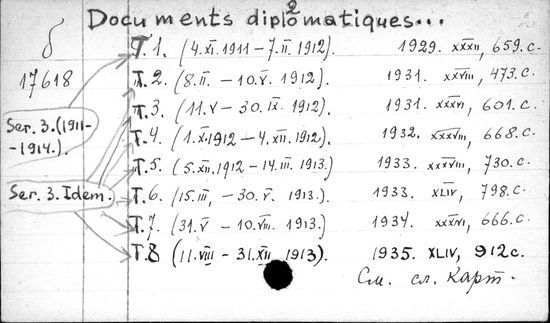 2
Documents diplomatiques...
б
17618
Ser. 3. (1911-
-1914.).
Ser. 3. Idem.
Т. 1. (4.XI.1911 – 7.II.1912). 1929. XXXII, 659.с.
Т. 2. (8.II. – 10.V. 1912). 1931. XXVIII, 473.с.
Т. 3 (11.V – 30.IX. 1912). 1931. XXXVI, 601.с.
Т. 4. (1.X.1912 – 4.XII.1912). 1932. XXXVIII, 668.с.
Т. 5 (5.XII.1912 – 14.III.1913). 1933. XXXVIII, 730.с.
Т. 6. (15.III, – 30.V. 1913.). 1933. XLIV, 798.с.
Т. 7. (31.V – 10.VIII. 1913.) 1934. XXXVI, 666.с.
Т. 8 (11.VIII – 31.XII 1913). 1935. XLIV, 912с.
См. сл. карт.